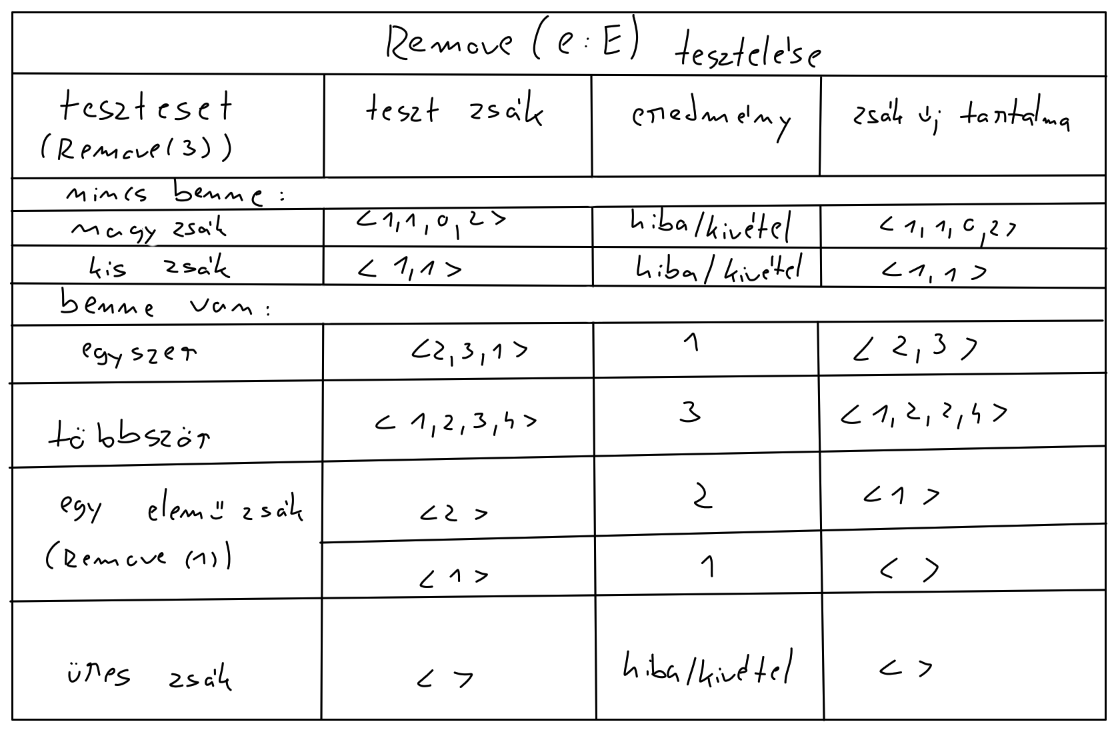 Remove (e:E) tesztelése
teszteset teszt zsák eredmény zsák új tartalma
(Remove(3))
nincs benne:
nagy zsák <1,1,0,2> hiba/kivétel <1,1,0,2>
kis zsák <1,1> hiba/kivétel <1,1>
benne van:
egyszer <2,3,1> 1 <2,3>
többször <1,2,3,4> 3 <1,2,2,4>
egy elemű zsák <2> 2 <1>
(Remove(1)) <1> 1 < >
üres zsák < > hiba/kivétel < >